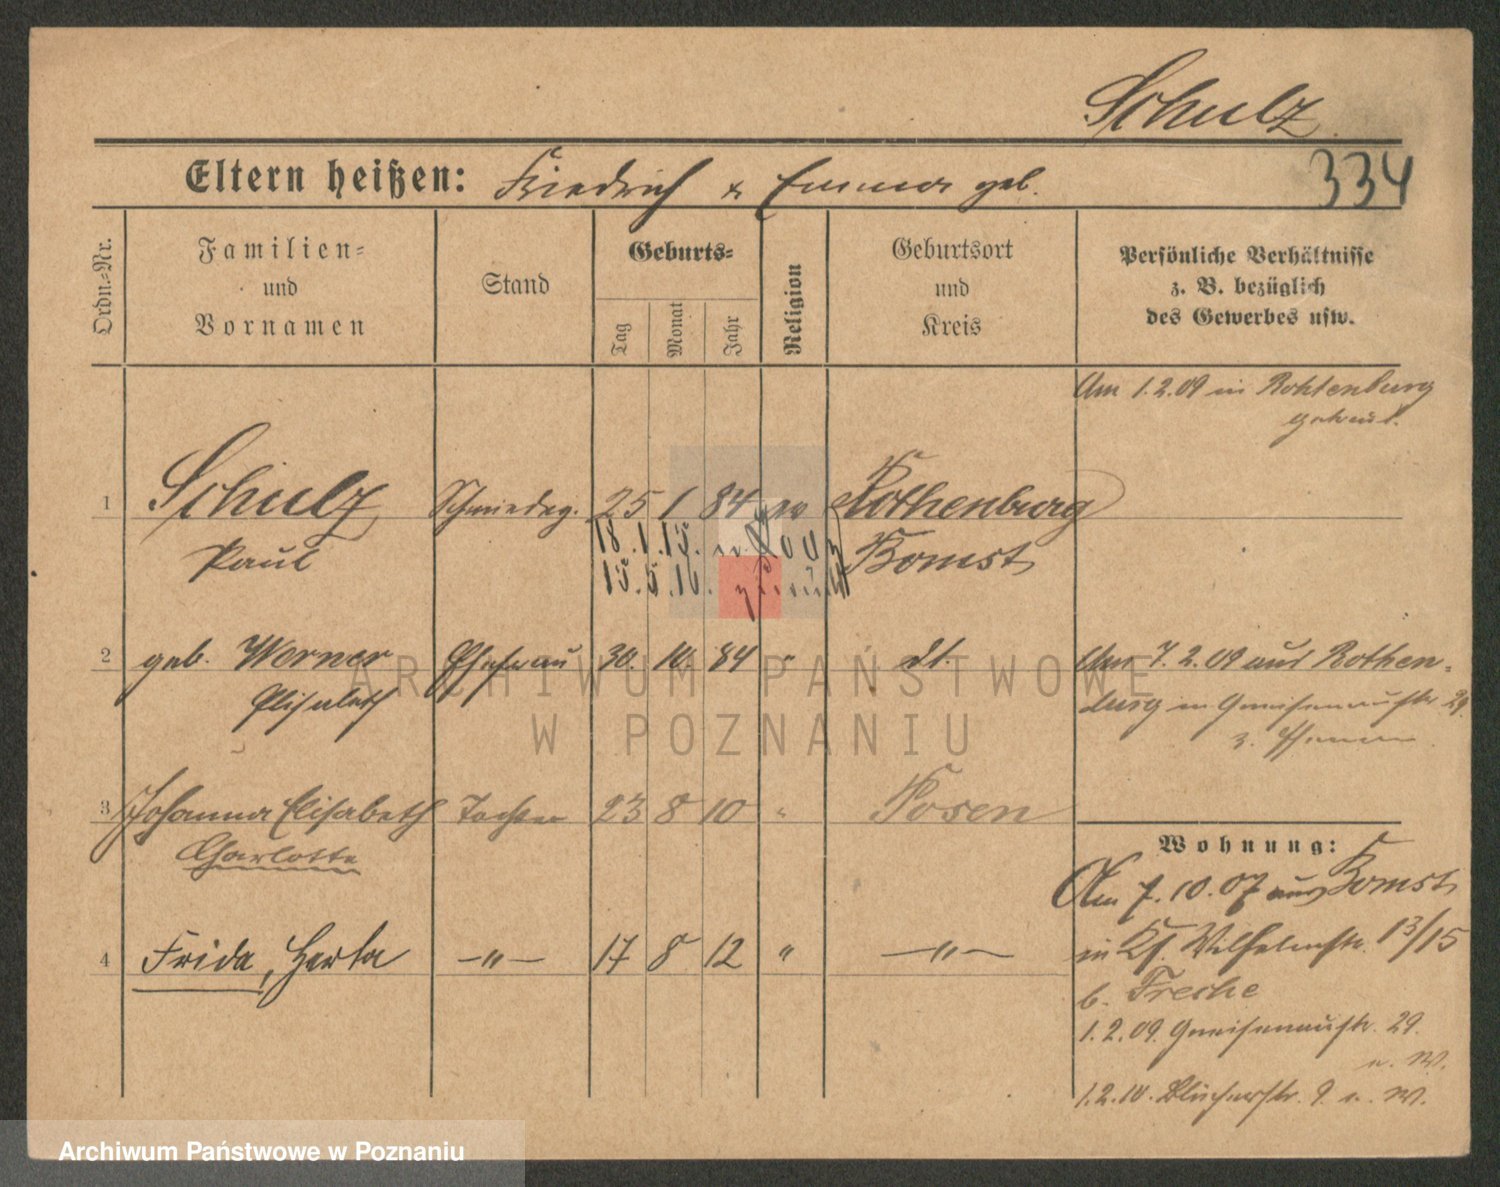 Schulz
Eltern heißen: Friedrich & Emma geb.
334
Ordn.-Nr.
Familien-
und
Vornamen
Stand
Geburts-
Tag
Monat
Jahr
Religion
Geburtsort
und
Kreis
Persönliche Verhältnisse
z. B. bezüglich
des Gewerbes usw.
Am 1.2.09 in Rohtenburg
getraut.
1 Schulz Schmiedeg. 25 1 84 ev Rothenburg
Paul Bomst
18.1.15.
15.5.16. zurück
2 geb. Werner Ehefrau 30. 10. 84 " dt.
Elisabeth
Am 7.2.09 aus Rothen-
burg in Gneisenaustr 29.
3 Johanna Elisabeth Tochter 23 8 10 " Posen
Charlotte
4 Frida, Herta —"— 17 8 12 " —"—
Wohnung:
Am 7.10.07 aus Bomst
in Ks. Wilhelmstr. 13/15
b. Freche
1.2.09. Gneisenaustr. 29.
u. W.
1.2.10. Blücherstr. 9. u. W.
ARCHIWUM PAŃSTWOWE
W POZNANIU
Archiwum Państwowe w Poznaniu